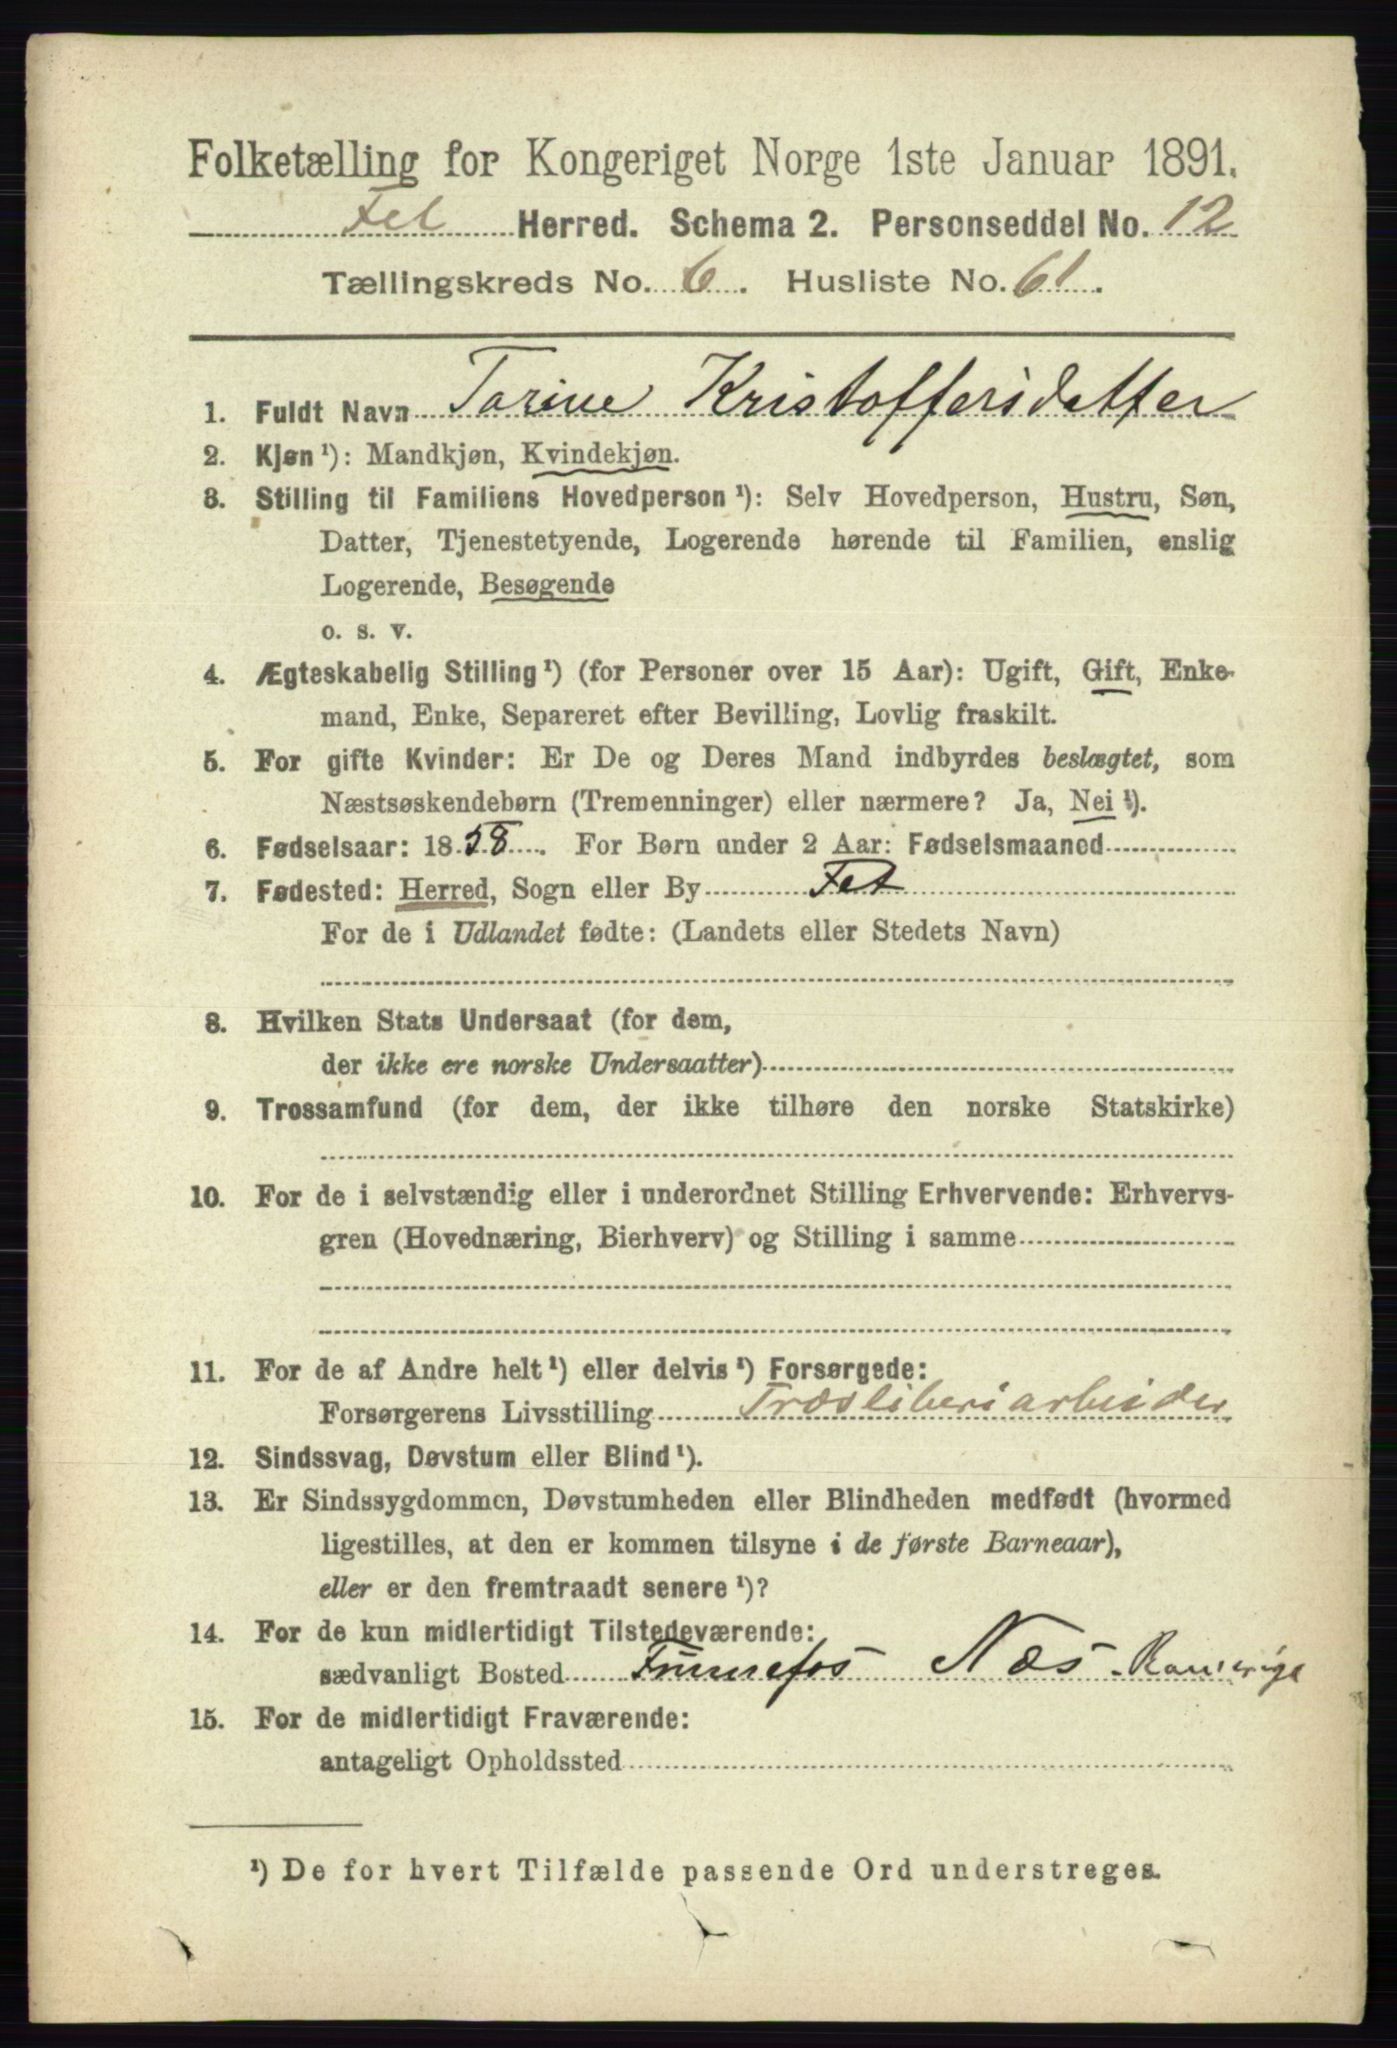 Folketælling for Kongeriget Norge 1ste Januar 1891.
Fet Herred. Schema 2. Personseddel No. 12
Tællingskreds No. 6. Husliste No. 61.
1. Fuldt Navn Torine Kristoffersdatter
2. Kjøn ¹): Mandkjøn, Kvindekjøn.
3. Stilling til Familiens Hovedperson ¹): Selv Hovedperson, Hustru, Søn,
Datter, Tjenestetyende, Logerende hørende til Familien, enslig
Logerende, Besøgende
o. s. v.
4. Ægteskabelig Stilling ¹) (for Personer over 15 Aar): Ugift, Gift, Enke-
mand, Enke, Separeret efter Bevilling, Lovlig fraskilt.
5. For gifte Kvinder: Er De og Deres Mand indbyrdes beslægtet, som
Næstsøskendebørn (Tremenninger) eller nærmere? Ja, Nei ¹).
6. Fødselsaar: 1858. For Børn under 2 Aar: Fødselsmaaned
7. Fødested: Herred, Sogn eller By Fet
For de i Udlandet fødte: (Landets eller Stedets Navn)
8. Hvilken Stats Undersaat (for dem,
der ikke ere norske Undersaatter)
9. Trossamfund (for dem, der ikke tilhøre den norske Statskirke)
10. For de i selvstændig eller i underordnet Stilling Erhvervende: Erhvervs-
gren (Hovednæring, Bierhverv) og Stilling i samme
11. For de af Andre helt ¹) eller delvis ¹) Forsørgede:
Forsørgerens Livsstilling Træsliberiarbeider
12. Sindssvag, Døvstum eller Blind ¹).
13. Er Sindssygdommen, Døvstumheden eller Blindheden medfødt (hvormed
ligestilles, at den er kommen tilsyne i de første Barneaar),
eller er den fremtraadt senere ¹)?
14. For de kun midlertidigt Tilstedeværende:
sædvanligt Bosted Funnefos Næs Romerige
15. For de midlertidigt Fraværende:
antageligt Opholdssted
¹) De for hvert Tilfælde passende Ord understreges.